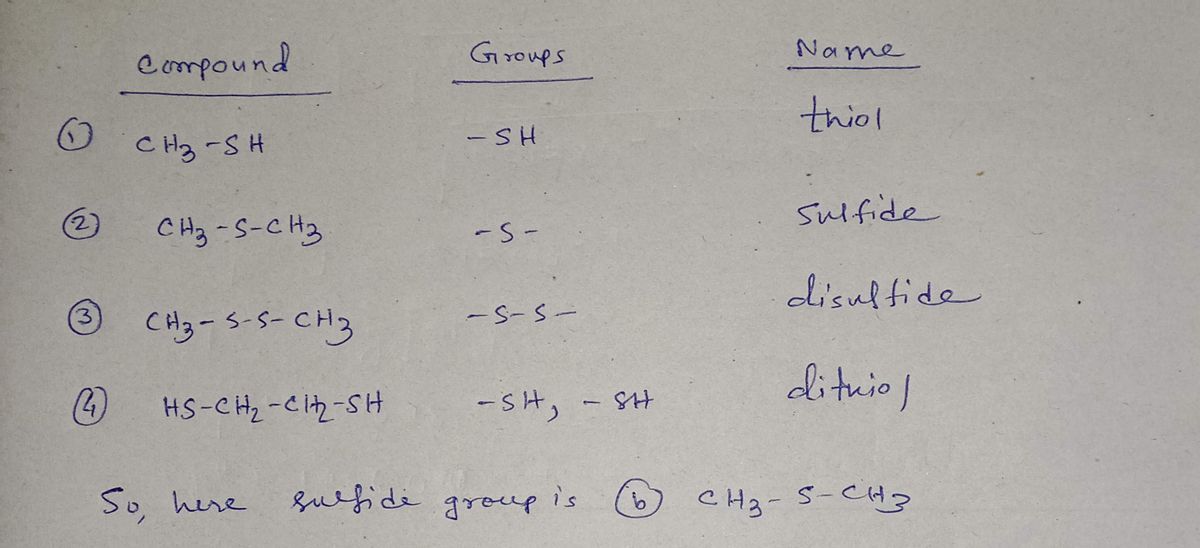 Compound Groups Name
① CH3-SH -SH thiol
② CH3-S-CH3 -S- sulfide
③ CH3-S-S-CH3 -S-S- disulfide
④ HS-CH2-CH2-SH -SH, -SH dithiol
So, here sulfide group is ⓑ CH3-S-CH3